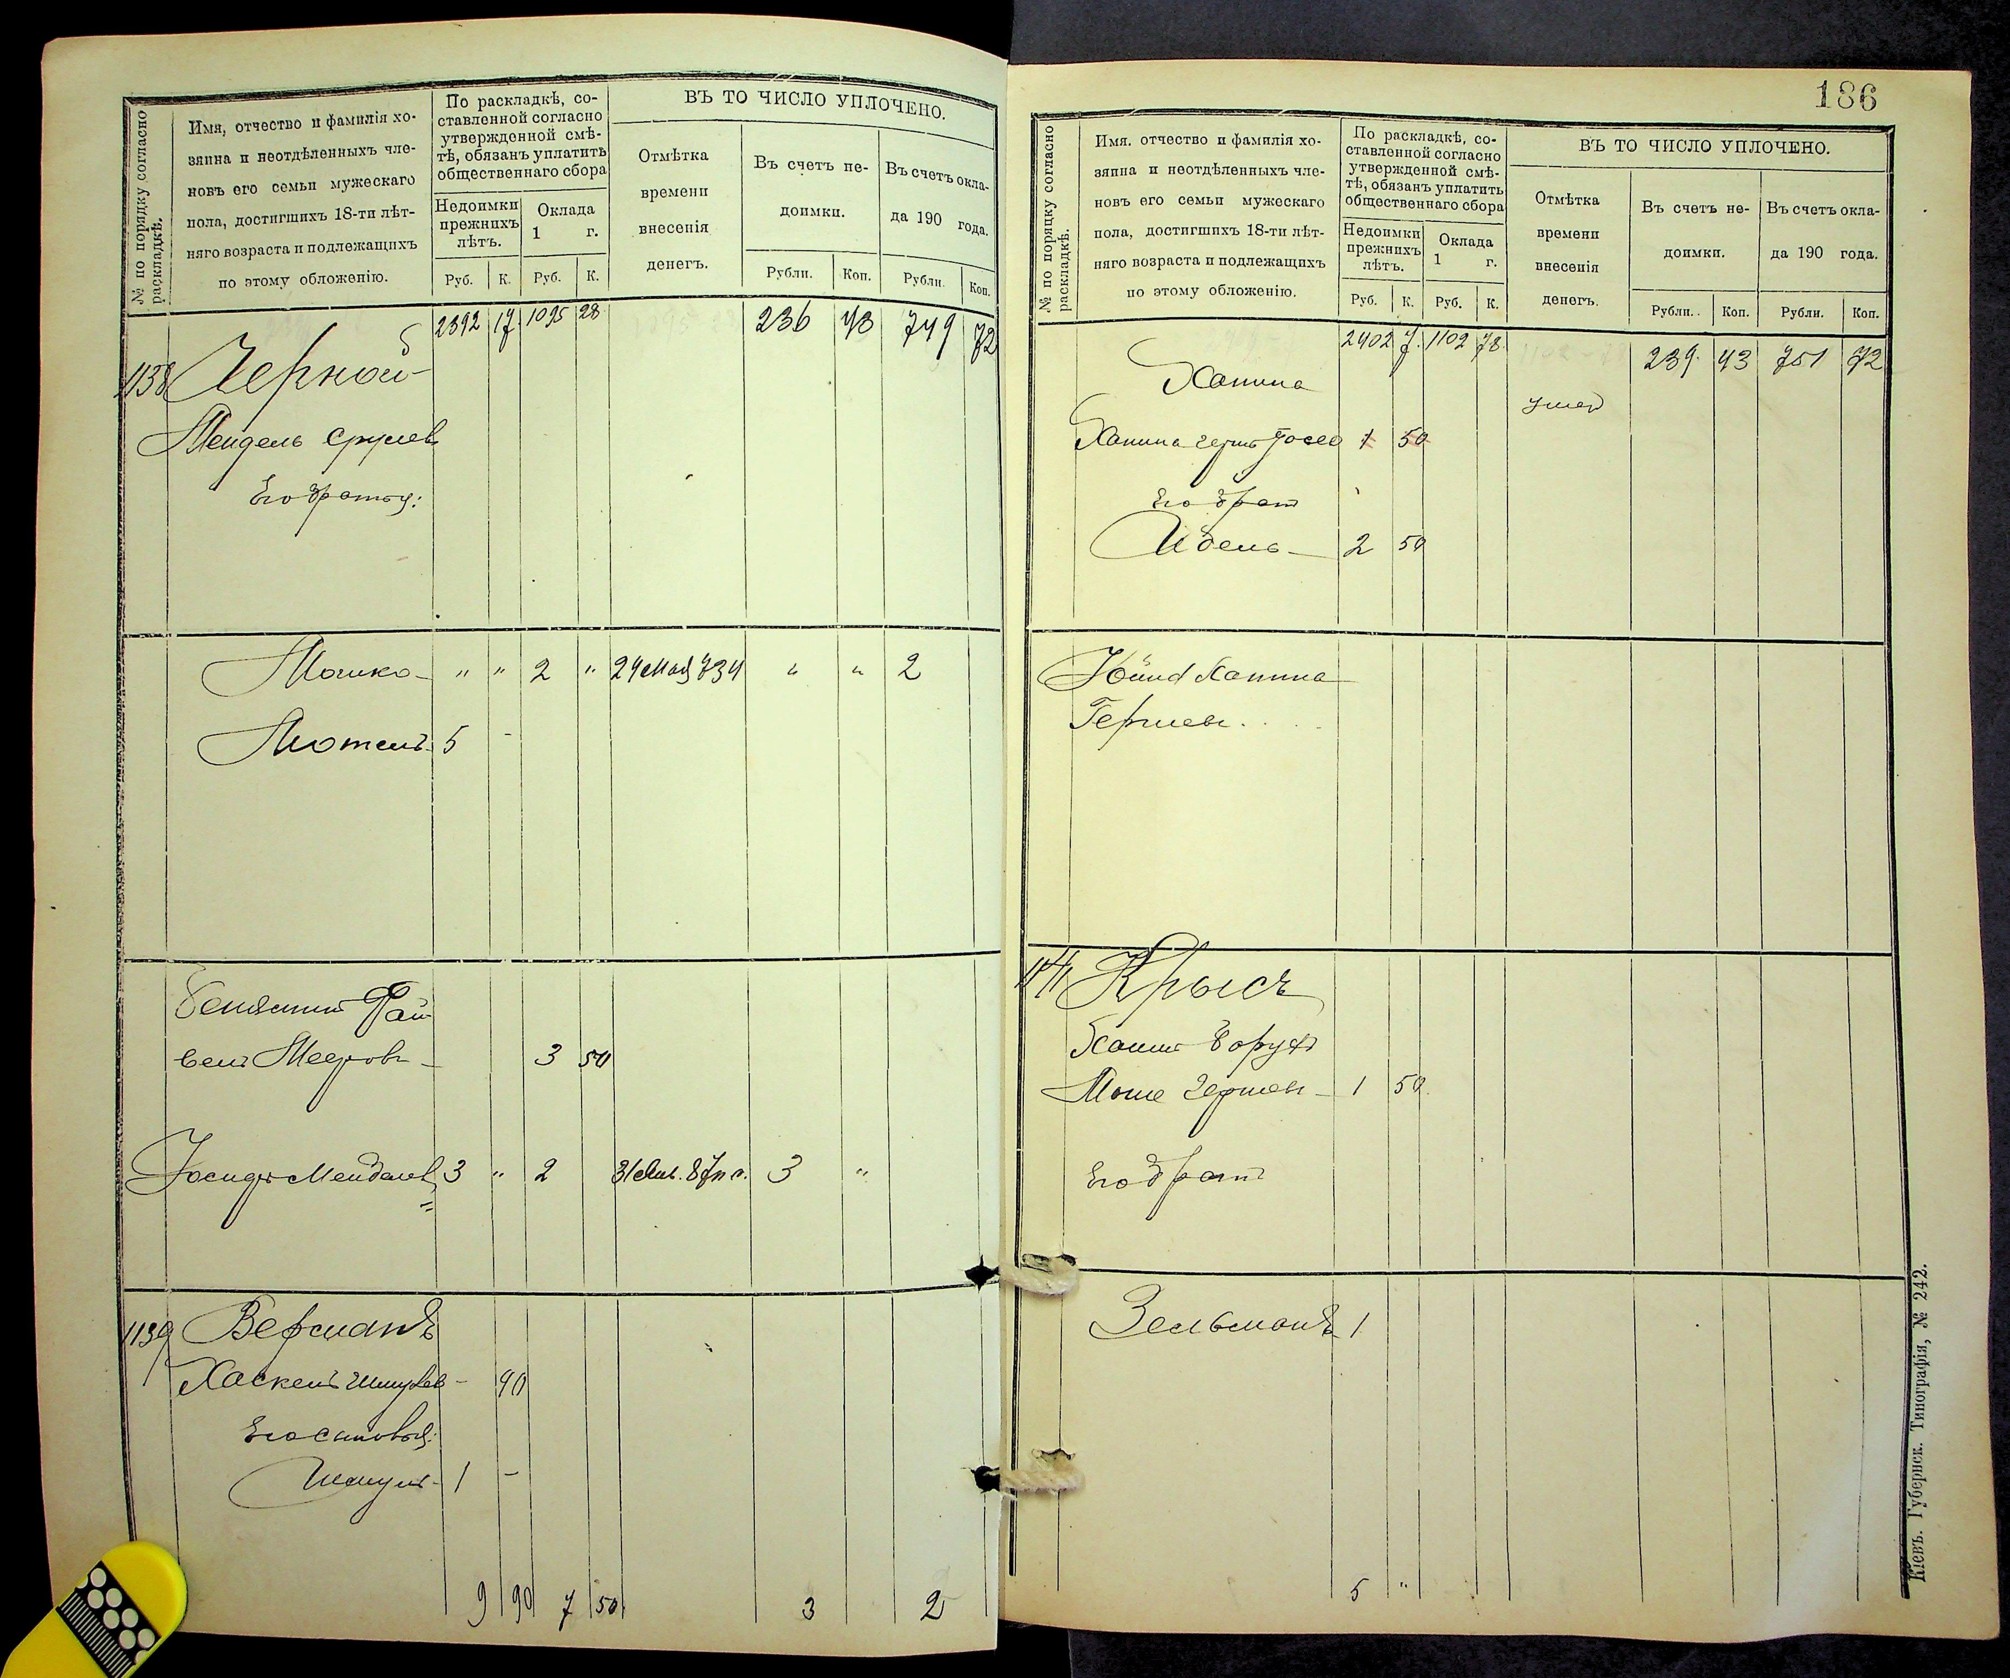 № по порядку согласно раскладкѣ.
Имя, отчество и фамилія хо-
зяина и неотдѣленныхъ чле-
новъ его семьи мужескаго
пола, достигшихъ 18-ти лѣт-
няго возраста и подлежащихъ
по этому обложенію.
По раскладкѣ, со-
ставленной согласно
утвержденной смѣ-
тѣ, обязанъ уплатить
общественнаго сбора
Недоимки
прежнихъ
лѣтъ.
Оклада
1 г.
Руб. К. Руб. К.
ВЪ ТО ЧИСЛО УПЛОЧЕНО.
Отмѣтка
времени
внесенія
денегъ.
Въ счетъ не-
доимки.
Въ счетъ окла-
да 190 года.
Рубли. Коп. Рубли. Коп.
2392 17 1095 28 236 43 749 72
1138 Черной
Мендель Срулев
Его братья:
Мошко - " " 2 " 24 мая 734 " " 2
Мотель 5 -
Бенямин Фай-
вель Мееров - 3 50
Иосиф Мендалев 3 " 2 3 "
1139 Верманъ
Хаскель Шмулев - 90
Его сыновья:
1 -
9 90 7 50 3 2
186
№ по порядку согласно раскладкѣ.
Имя. отчество и фамилія хо-
зяина и неотдѣленныхъ чле-
новъ его семьи мужескаго
пола, достигшихъ 18-ти лѣт-
няго возраста и подлежащихъ
по этому обложенію.
По раскладкѣ, со-
ставленной согласно
утвержденной смѣ-
тѣ, обязанъ уплатить
общественнаго сбора
Недоимки
прежнихъ
лѣтъ.
Оклада
1 г.
Руб. К. Руб. К.
ВЪ ТО ЧИСЛО УПЛОЧЕНО.
Отмѣтка
времени
внесенія
денегъ.
Въ счетъ не-
доимки.
Въ счетъ окла-
да 190 года.
Рубли. Коп. Рубли. Коп.
2402 7 1102 78 239 43 751 72
Ханина
умер
Ханина 1 50
Его брат
Идель - 2 50
Ханина
Гершев
1141 Крысъ
Хаим Борух
Моше Гершев - 1 50
Его брат
Зельманъ 1
5 "
Кіевъ. Губернск. Типографія, № 242.